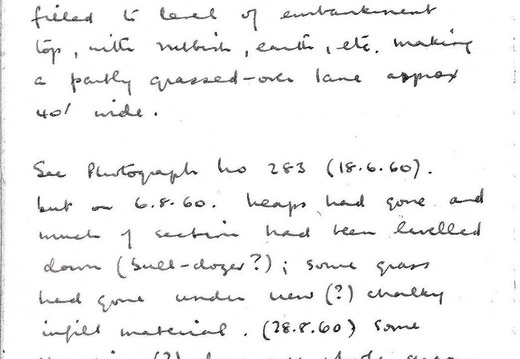 filled to level of embankment
top, with rubbish, earth, etc. making
a partly grassed-over lane approx
40' wide.
See Photograph No 283 (18.6.60).
but on 6.8.60. heaps had gone and
much of section had been levelled
down (bull-dozer?); some grass
had gone under new (?) chalky
infill material. (28.8.60) Some
(?)